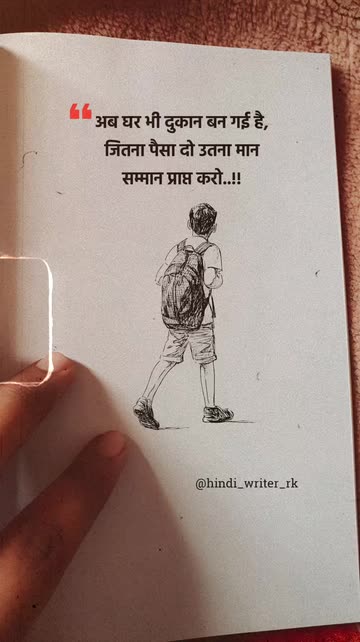 ❝ अब घर भी दुकान बन गई है,
जितना पैसा दो उतना मान
सम्मान प्राप्त करो..!!
@hindi_writer_rk